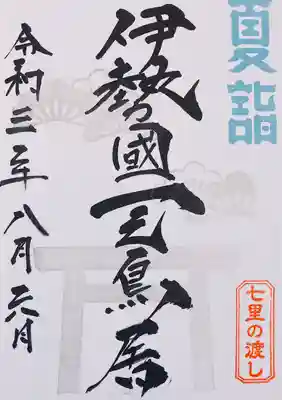 夏詣
伊勢國一之鳥居
七里の渡し
令和三年八月六日